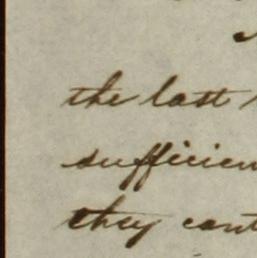 the last
sufficien
they cont